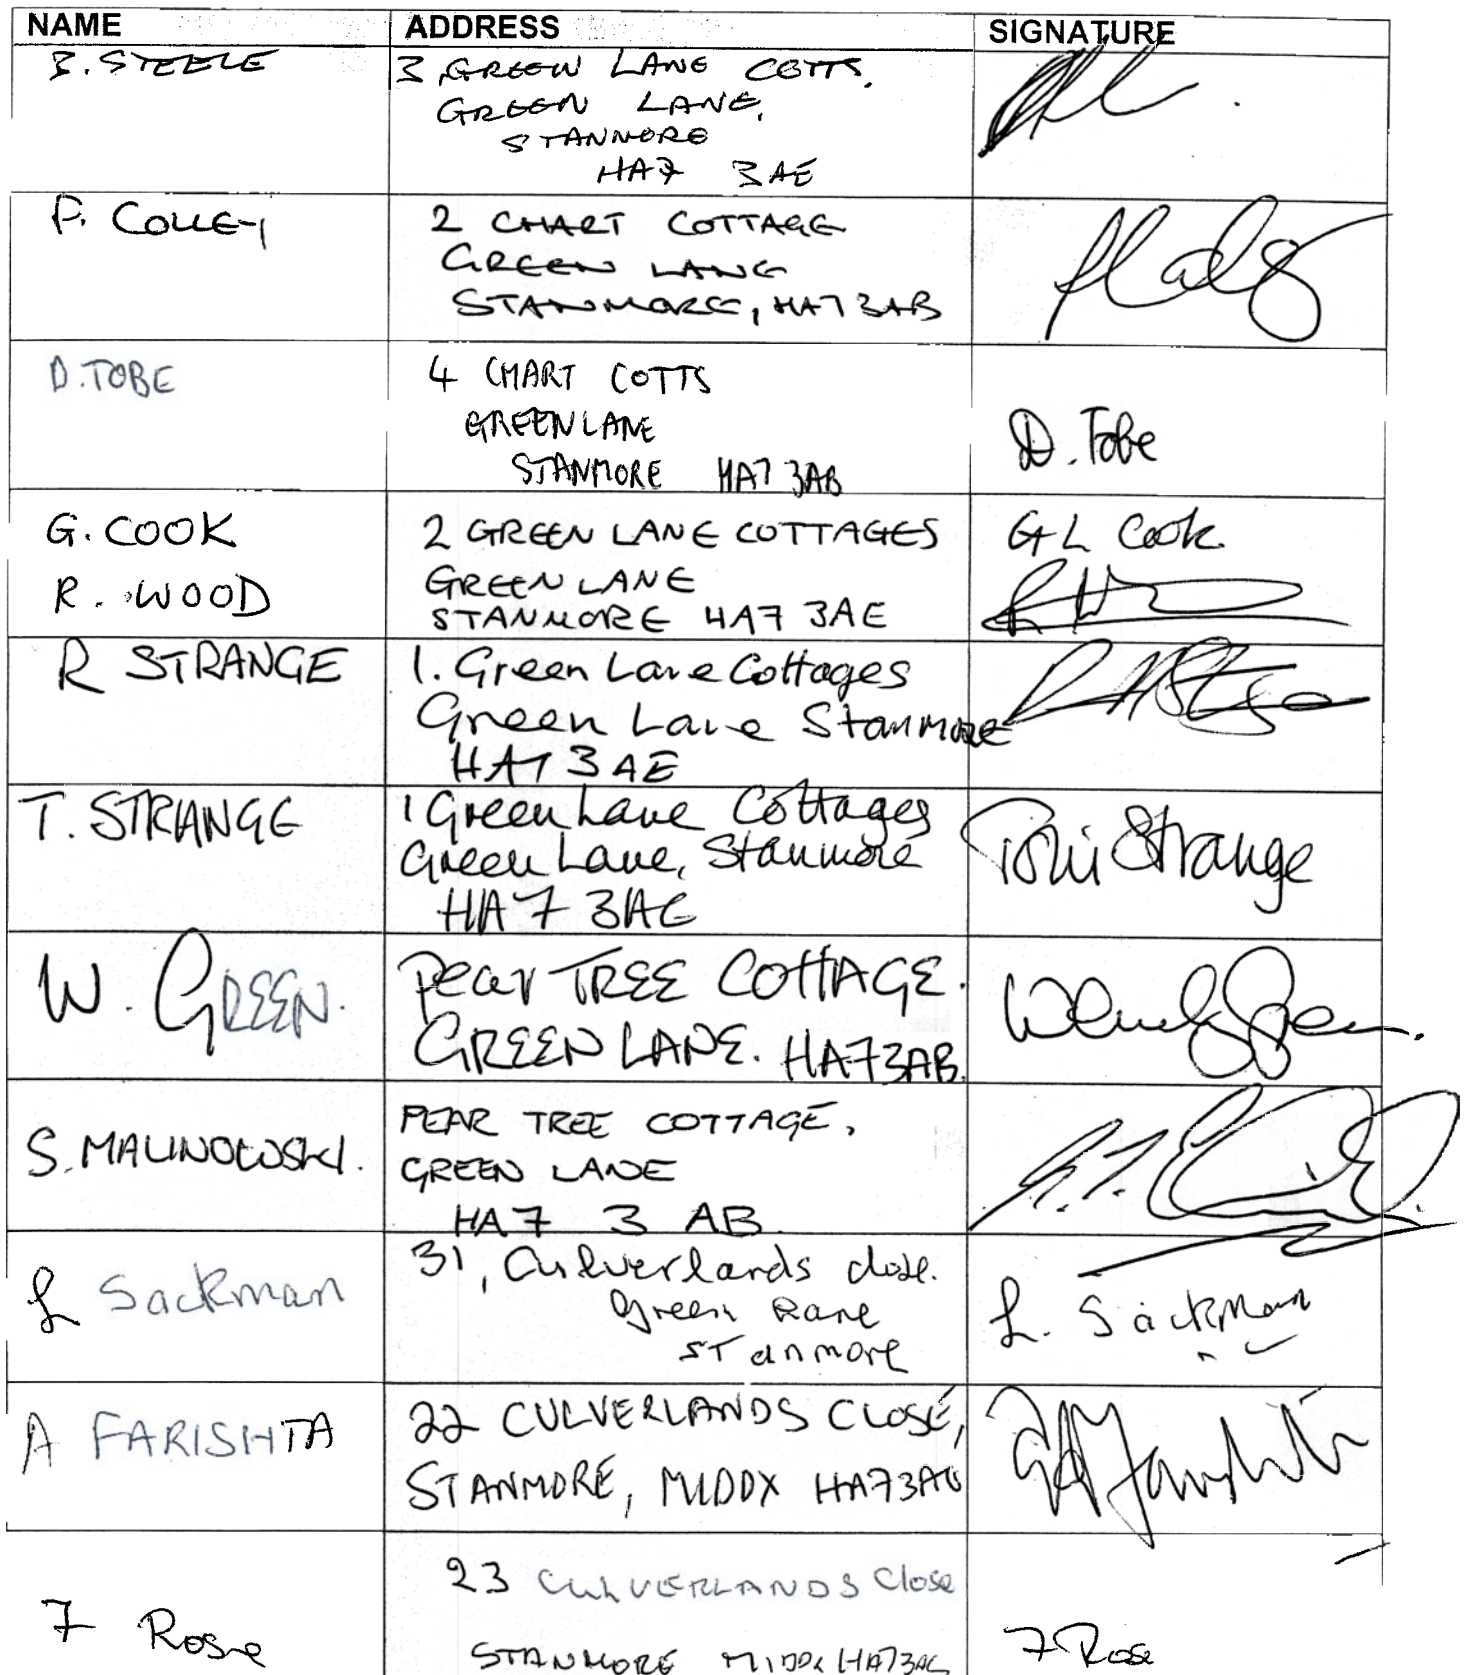 NAME ADDRESS SIGNATURE
B. STEELE 3, GREEN LANE COTTS.
GREEN LANE,
STANMORE
HA7 3AE
P. COLLEY 2 CHART COTTAGE
GREEN LANE
STANMORE, HA7 3AB
D. TOBE 4 CHART COTTS
GREEN LANE
STANMORE HA7 3AB
D. Tobe
G. COOK 2 GREEN LANE COTTAGES G L Cook
R. WOOD GREEN LANE
STANMORE HA7 3AE
R STRANGE 1. Green Lane Cottages
Green Lane Stanmore
HA7 3AE
T. STRANGE 1 Green Lane Cottages
Green Lane, Stanmore Toni Strange
HA7 3AE
W. GREEN. Pear TREE COTTAGE. Wendy Green.
GREEN LANE. HA7 3AB.
S. MALINOWSKI. PEAR TREE COTTAGE,
GREEN LANE
HA7 3 AB.
L Sackman 31, Culverlands close.
Green Lane L. Sackman
Stanmore
A FARISHTA 22 CULVERLANDS CLOSE,
STANMORE, MIDDX HA7 3AG
23 CULVERLANDS Close
7 Rose STANMORE MIDDX HA7 3AG 7 Rose